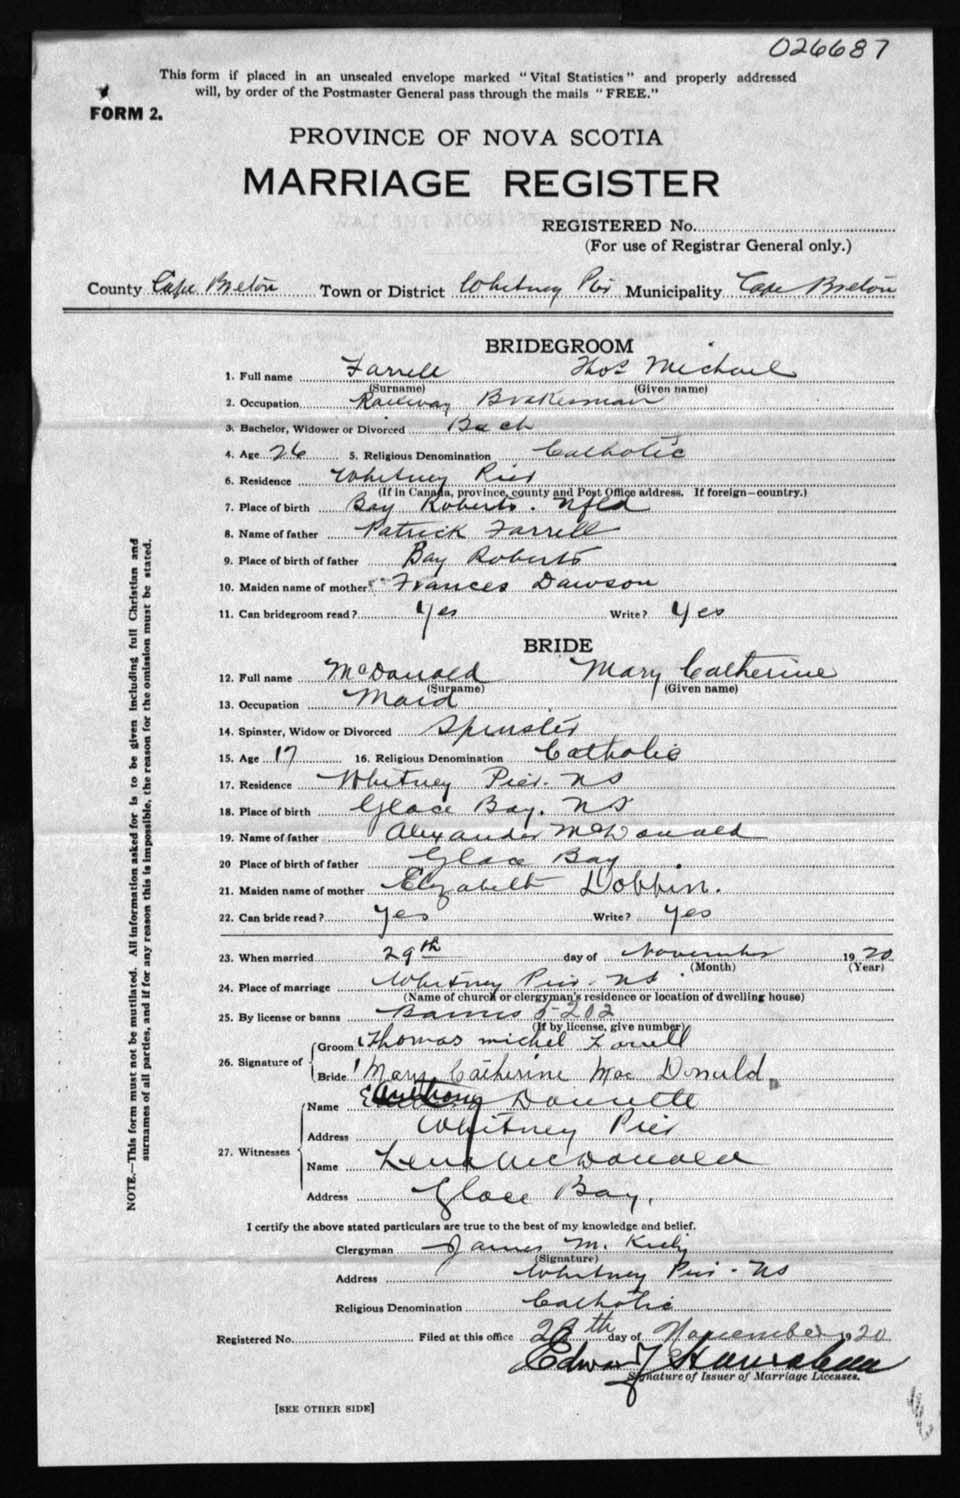 026687
This form if placed in an unsealed envelope marked "Vital Statistics" and properly addressed
will, by order of the Postmaster General pass through the mails "FREE."
FORM 2.
PROVINCE OF NOVA SCOTIA
MARRIAGE REGISTER
REGISTERED No.
(For use of Registrar General only.)
County Cape Breton Town or District Whitney Pier Municipality Cape Breton
BRIDEGROOM
1. Full name Farrell Thos Michael
(Surname) (Given name)
2. Occupation Railway Brakesman
3. Bachelor, Widower or Divorced Bach
4. Age 26 5. Religious Denomination Catholic
6. Residence Whitney Pier
(If in Canada, province, county and Post Office address. If foreign—country.)
7. Place of birth Bay Roberts. Nfld
8. Name of father Patrick Farrell
9. Place of birth of father Bay Roberts
10. Maiden name of mother Frances Dawson
11. Can bridegroom read? Yes Write? Yes
BRIDE
12. Full name McDonald Mary Catherine
(Surname) (Given name)
13. Occupation Maid
14. Spinster, Widow or Divorced Spinster
15. Age 17 16. Religious Denomination Catholic
17. Residence Whitney Pier. NS
18. Place of birth Glace Bay. NS
19. Name of father Alexander McDonald
20 Place of birth of father Glace Bay
21. Maiden name of mother Elizabeth Dobbin.
22. Can bride read? Yes Write? Yes
23. When married 29th day of November 1920
(Month) (Year)
24. Place of marriage Whitney Pier. NS
(Name of church or clergyman's residence or location of dwelling house)
25. By license or banns Banns 5202
(If by license, give number)
26. Signature of
Groom Thomas michel Farrell
Bride Mary Catherine Mac Donald
27. Witnesses
Name Anthony
Address Whitney Pier
Name Lena McDonald
Address Glace Bay.
I certify the above stated particulars are true to the best of my knowledge and belief.
Clergyman James M. Kiely
(Signature)
Address Whitney Pier - NS
Religious Denomination Catholic
Registered No. Filed at this office 29th day of November 1920
Edward
Signature of Issuer of Marriage Licenses.
[SEE OTHER SIDE]
NOTE.—This form must not be mutilated. All information asked for is to be given including full Christian and
surnames of all parties, and if for any reason this is impossible, the reason for the omission must be stated.